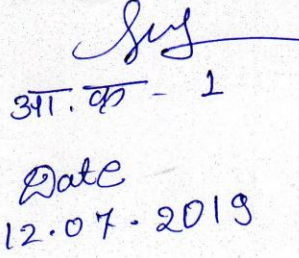 आ. क - 1
Date
12.07.2019